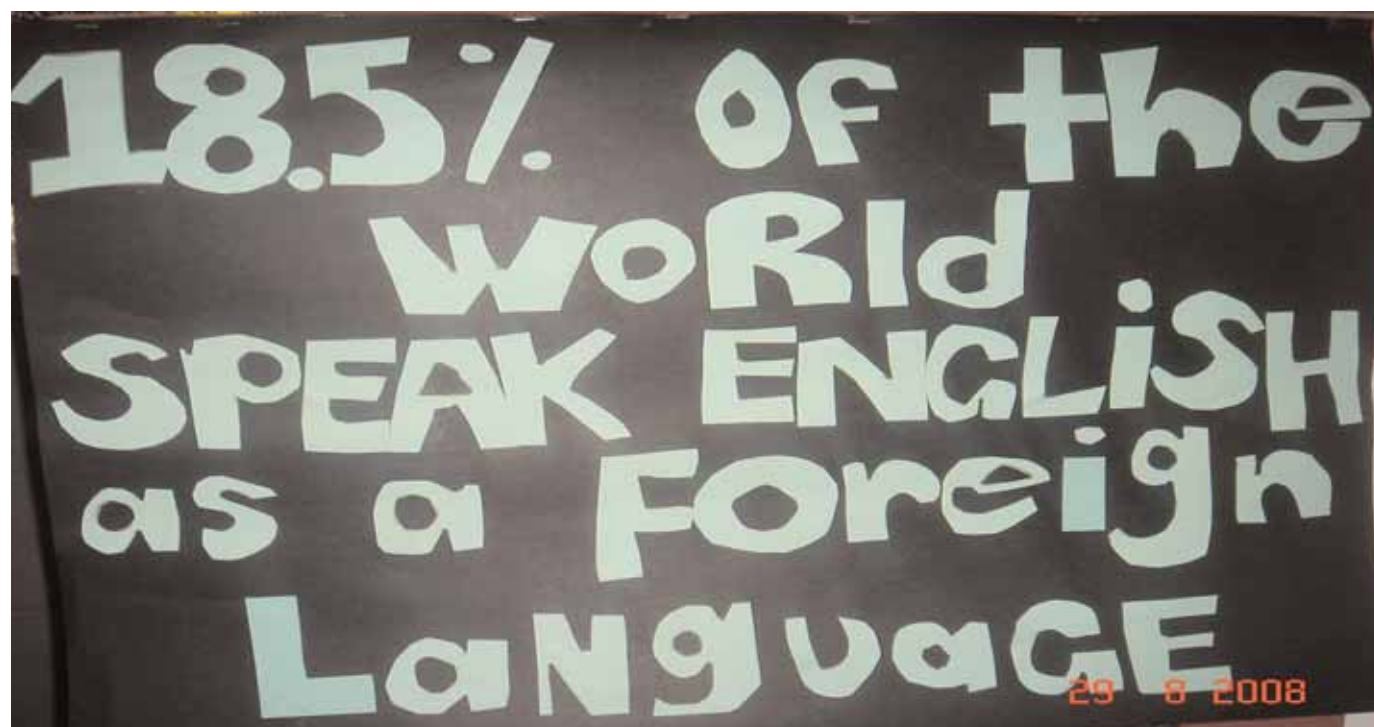 18.5% of the
WoRld
SPEAK ENGLiSH
as a Foreign
LaNguaGE
29 8 2008